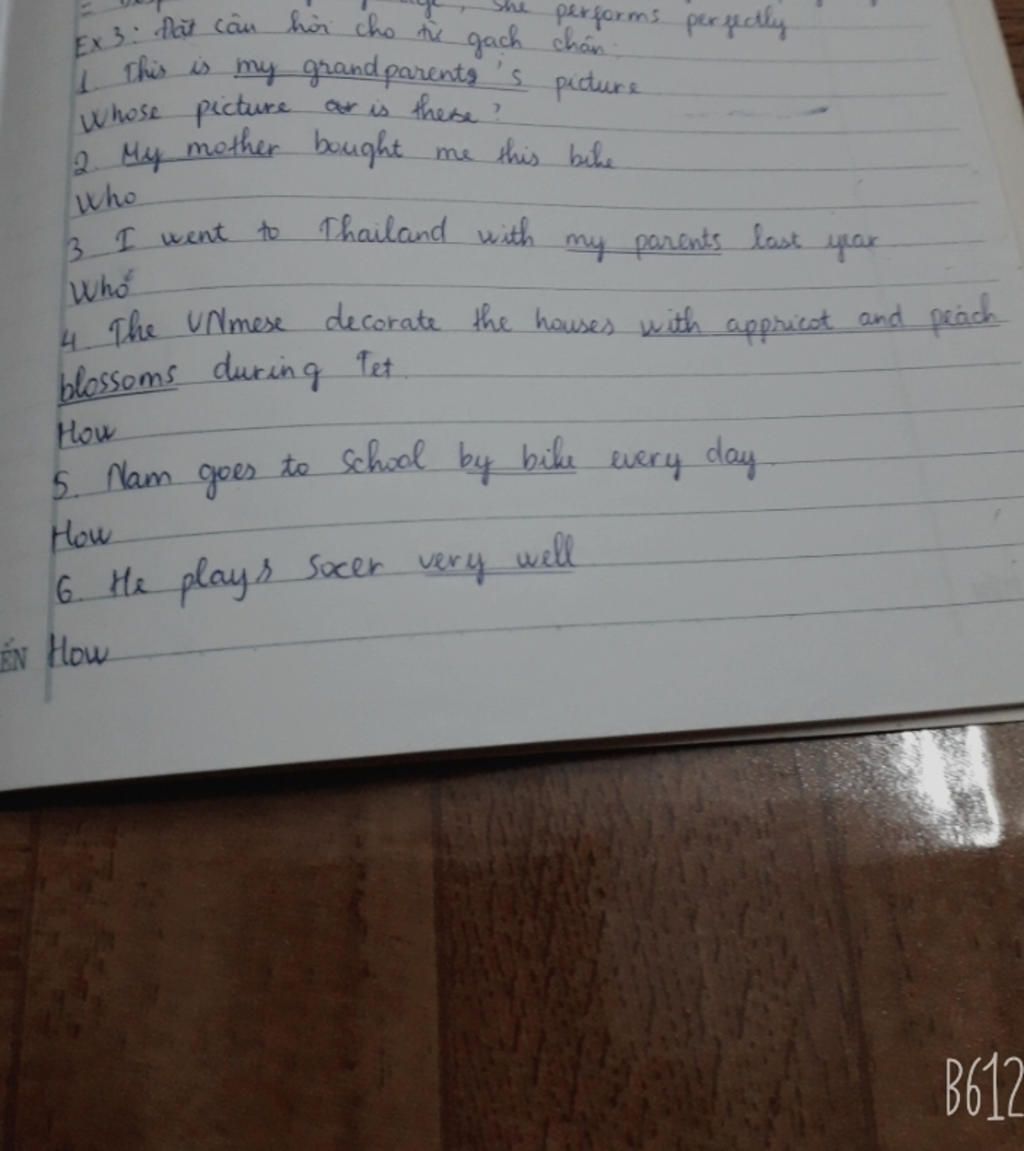 she performs perfectly
Ex 3: Đặt câu hỏi cho từ gạch chân:
1. This is my grandparents's picture
Whose picture is these?
2. My mother bought me this bike
Who
3 I went to Thailand with my parents last year
Who
4 The VNmese decorate the houses with appricot and peach
blossoms during Tet.
How
5. Nam goes to school by bike every day
How
6. He plays socer very well
ẾN How
B612